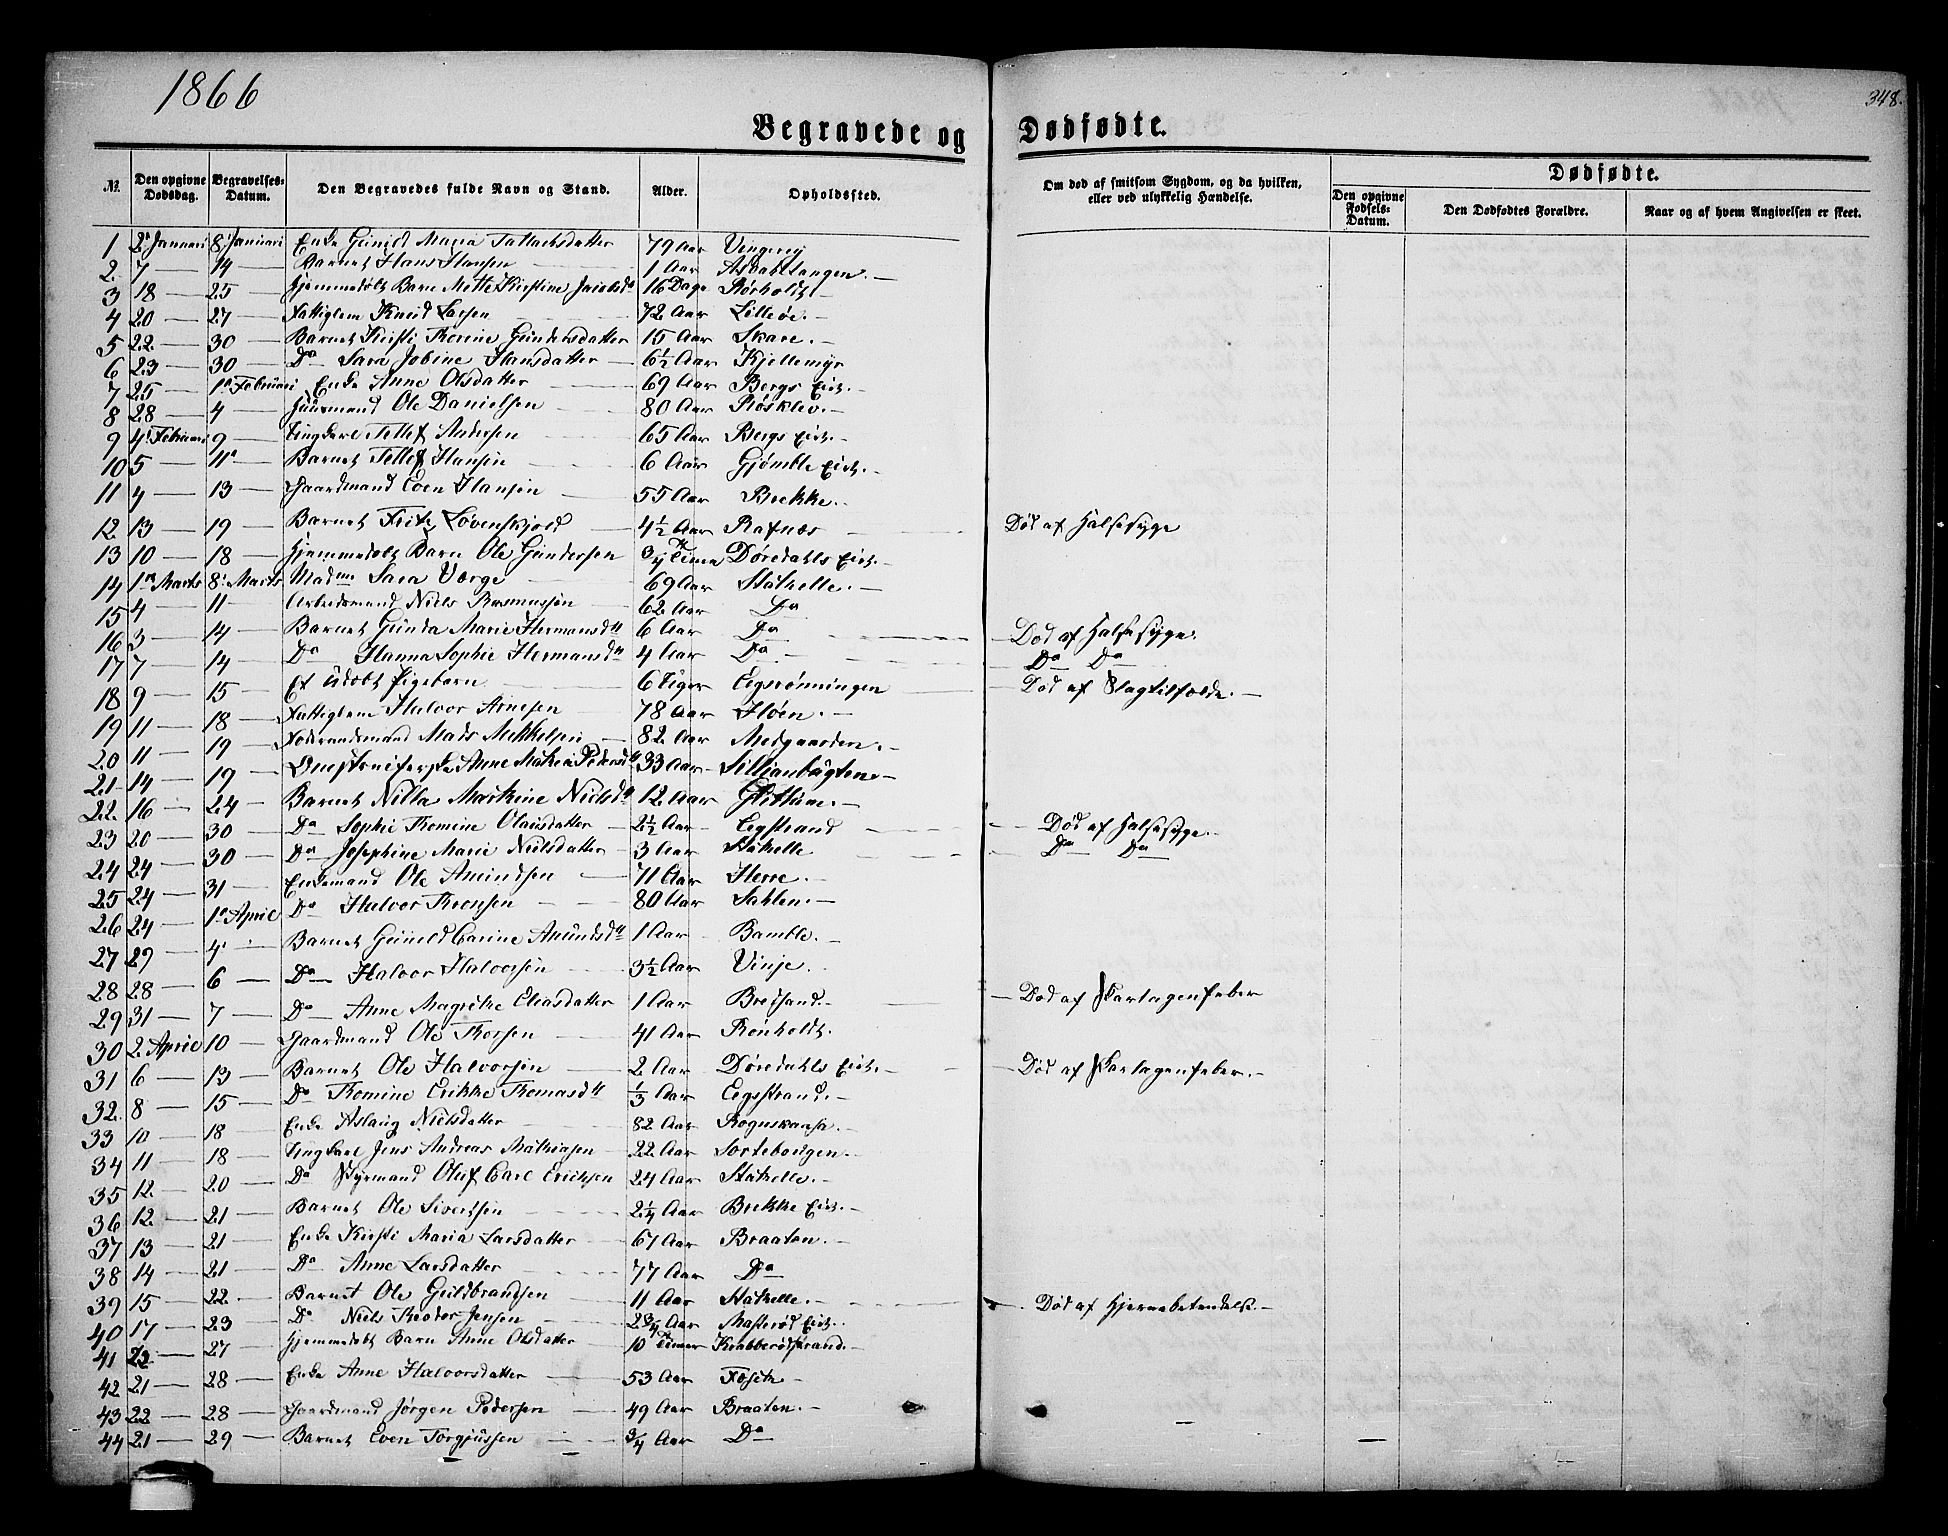 1866
348.
Begravede og Dødfødte.
№. Den opgivne Dødsdag. Begravelses-Datum. Den Begravedes fulde Navn og Stand. Alder. Opholdssted. Om død af smitsom Sygdom, og da hvilken, eller ved ulykkelig Hændelse. Dødfødte. Den opgivne Fødsels-Datum. Den Dødfødtes Forældre. Naar og af hvem Angivelsen er skeet.
1 2 Januari 8 Januari Enke Gunild Maria Tallaksdatter 79 Aar Vingerej
2. 7 — 14 — Barnet Hans Hansen 1 Aar Asdalstangen. —
3 18 — 25 — Hjemmedøbt Barn Mette Kirstine Jacobsd 16 Dage Rørholdt
4 20 — 27 — Fattiglem Knud Larsen 72 Aar Lilleøe. —
5 22 — 30 — Barnet Kirsti Thorine Gundersdatter 15 Aar Skare. —
6 23 — 30 — Do Sara Jobine Hansdatter — 6½ Aar Kjellemyr
7 25 — 1 Februari Enke Anne Olsdatter 69 Aar Bergs Eie. —
8 28 — 4 — Huusmand Ole Danielsen 80 Aar Røsklev. —
9 4 Februari 9 — Ungkarl Tellef Andersen 65 Aar Bergs Eie. —
10 5 — 11 — Barnet Tellef Hansen 6 Aar Gjømle Eie. —
11 4 — 13 — Gaardmand Even Hansen 55 Aar Brekke. —
12. 13 — 19 — Barnet Fritz Løvenskjold 4½ Aar Rafnæs Død af Halssyge
13 10 — 18 — Hjemmedøbt Barn Ole Gundersen 3/4 Time Dørdahls Eie. —
14 1 Marts 8 Marts Madme Sara Værge 69 Aar Stathelle. —
15 4 — 11 — Arbeidsmand Niels Rasmussen 62 Aar Do
16 3 — 14 — Barnet Gunda Marie Hermansd 6 Aar Do Død af Halssyge.
17 7 — 14 — Do Hanna Sophie Hermansd 4 Aar Do Do Do
18 9 — 15 — Et Udøbt Pigebarn 6 Uger Eegsrønningen Død af Slagtilfælde. —
19 11 — 18 — Fattiglem Halvor Arnesen 78 Aar Fløen. —
20 11 — 19 — Føderaadsmand Mads Mikkelsen 82 Aar Midgaarden. —
21 14 — 19 — Anne Mathea Pedersd 33 Aar
22. 16 — 24 — Barnet Nilla Martine Nielsd 12 Aar
23 20 — 30 — Do Sophie Thomine Olausdatter 2½ Aar Eegstrand Død af Halssyge.
24 24 — 30 — Do Josephine Marie Nielsdatter 3 Aar Stathelle Do Do
25 24 — 31 — Enkemand Ole Amundsen 71 Aar Herre. —
26 24 — 1 April Do Halvor Thronsen 80 Aar Sahlen. —
27 29 — 4 — Barnet Gunild Carine Amundsd 1 Aar Bamble. —
28 28 — 6 — Do Halvor Halvorsen 3½ Aar Vinje. —
29 31 — 7 — Do Anne Magrethe Eliasdatter 1 Aar Bredsand. — Død af Skarlagenfeber
30 2 April 10 — Gaardmand Ole Thorsen 41 Aar Rønholdt.
31 6 — 13 — Barnet Ole Halvorsen 2 Aar Dørdahls Eie. — Død af Skarlagenfeber. —
32. 8 — 15 — Do Thomine Erikke Thomasd 1/3 Aar Eegstrand. —
33 10 — 18 — Enke Aslaug Nielsdatter 82 Aar Rognskansa. —
34 11 — 18 — Ungkarl Jens Andreas Mathiasen 22 Aar Sortebougen. —
35 12. — 20 — Do Styrmand Oluf Carl Ericksen 24 Aar Stathelle. —
36 12. — 21 — Barnet Ole Sivertsen 2¼ Aar Brekke Eie. —
37 13 — 21 — Enke Kirsti Maria Larsdatter 67 Aar Braaten. —
38 14 — 21 — Do Anne Larsdatter 77 Aar Do
39 15 — 22. — Barnet Ole Guldbrandsen 11 Aar Stathelle. Død af Hjernebetændelse. —
40 17 — 23 — Do Niels Theodor Jensen 2¾ Aar Masterød Eie. —
41 22 — 27 — Hjemmedøbt Barn Anne Olsdatter 10 Timer Krabberødstrand. —
42. 21 — 28 — Enke Anne Halvorsdatter 53 Aar
43 22 — 28 — Gaardmand Jørgen Pedersen 49 Aar Braaten. —
44 21 — 29 — Barnet Even Torgjussen ¾ Aar Do